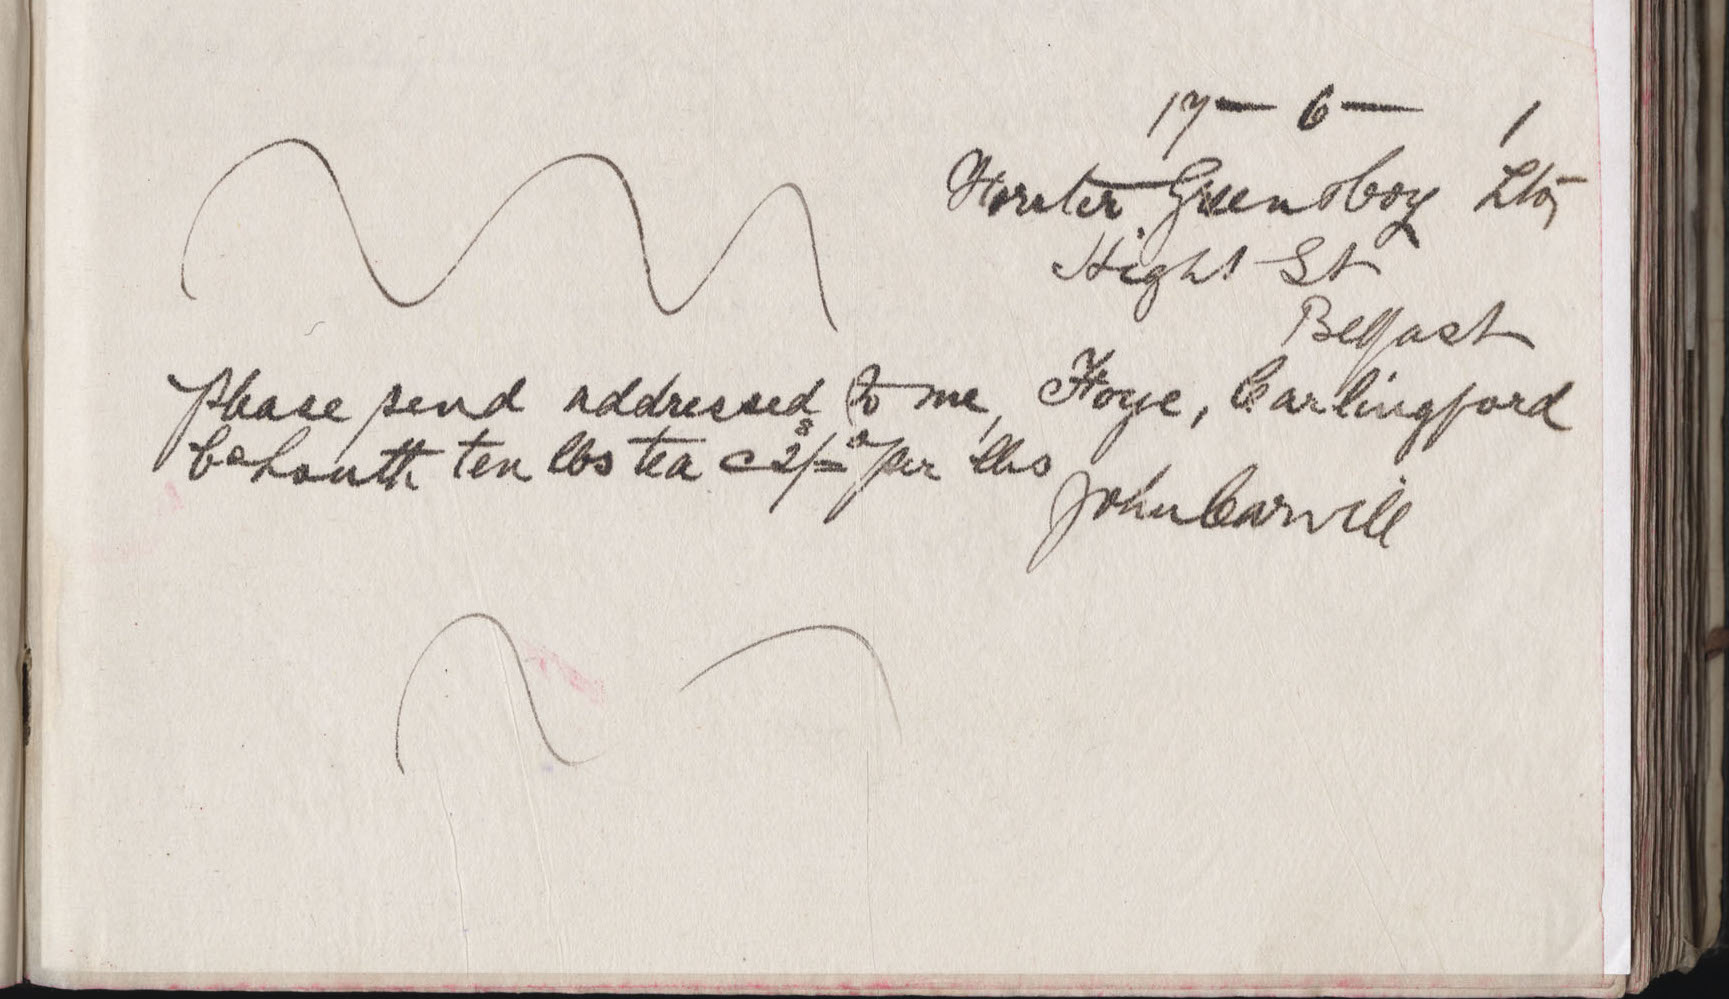 17 — 6 — 1
Forster Green & Coy Ltd,
Hight St
Belfast
Please send addressed to me, Foye, Carlingford
Co Louth ten lbs tea @ 2s/=d per lbs
John Carvill